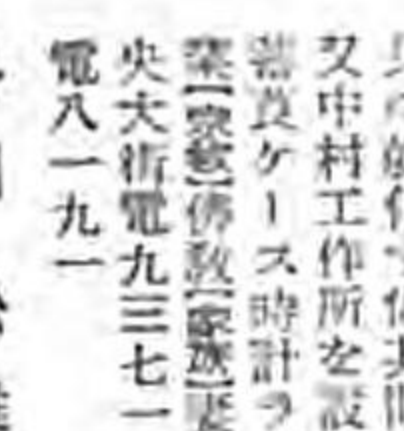 又中村工作所を設
蓄音ケース時計ラ
業【宗教】佛敎【家族】妻
央大街電九三七一
電八一九一